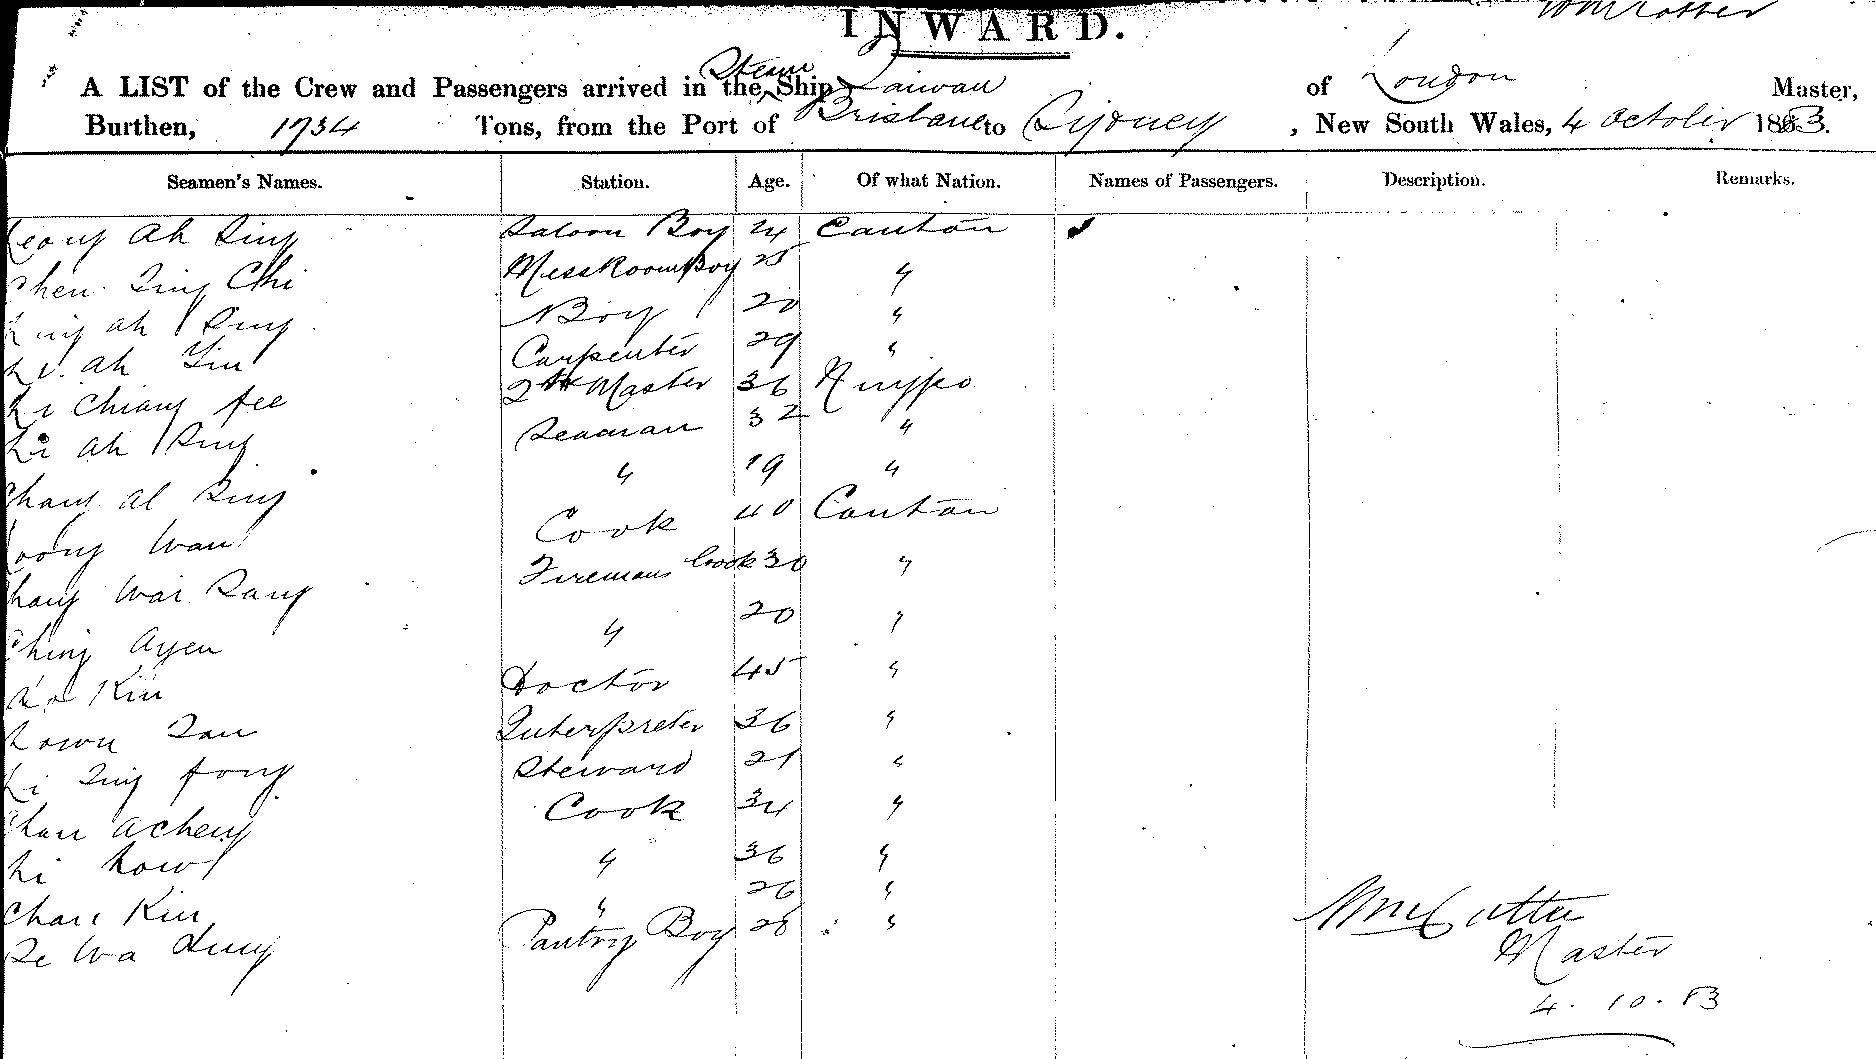 INWARD.
A LIST of the Crew and Passengers arrived in the Steam Ship Taiwan of London Master,
Burthen, 1734 Tons, from the Port of Brisbane to Sydney, New South Wales, 4 October 1883.
Seamen's Names. Station. Age. Of what Nation. Names of Passengers. Description. Remarks.
Ah Sing Saloon Boy 24 Canton
Chen Ting Chi Mess Room Boy 25 "
Ah Sing Boy 20 "
Ah Carpenter 29 "
Li Chiang fee 2nd Master 36 Ningpo
Li Ah Sing Seaman 32 "
Chang Al Sing " 19 "
Wan Cook 40 Canton
Chang Wai Sang Firemans Cook 30 "
Ching Ayen " 20 "
Kin Doctor 45 "
Interpreter 36 "
Li Ting fong Steward 21 "
Chan Acheng Cook 34 "
how " 36 "
Chan Kin " 26 "
Se Wa Pantry Boy 28 "
Master
4. 10. 83